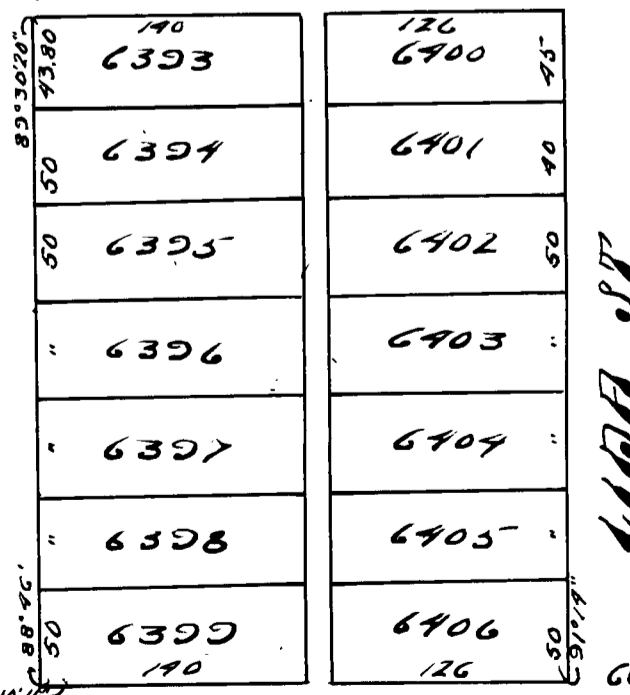 89°30'20"
140
43.80
6393
50
6394
50
6395
"
6396
"
6397
"
6398
50
6399
140
88°46'
126
6400
45
6401
40
6402
50
6403
"
6404
"
6405
"
6406
50
126
91°14"
ST